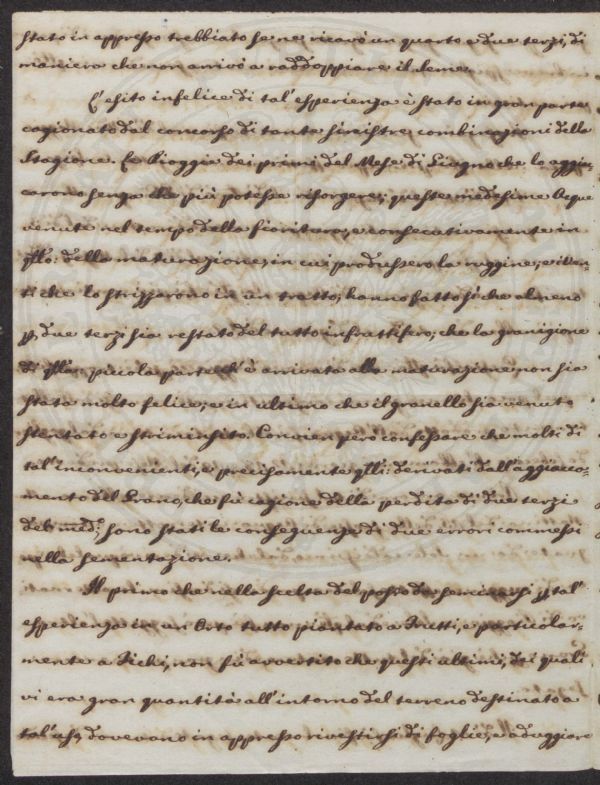 stato in appresso trebbiato se ne ricavò un quarto e due terzi, di
maniera che non arrivò a raddoppiare il seme.
L'esito infelice di tal'esperienza è stato in gran parte
cagionato dal concorso di tante sinistre combinazioni della
Stagione. Le Pioggie dei primi del Mese di Giugno che lo aggiac-
carono senza che più potesse risorgere; queste medesime Acque
venute nel tempo della fioritura, e consecutivamente in
qllo. della maturazione, in cui produssero la ruggine; e i Ven-
ti che lo strizzarono in un tratto, hanno fatto sì che almeno
p. due terzi sia restato del tutto infruttifero; che la granigione
di qlla piccola parte ch'è arrivata alla maturazione, non sia
stata molto felice; e in ultimo che il granello sia venuto
stentato e striminsito. Convien però confessare che molti di
tal'inconvenienti, e precisamente qlli. derivati dall'aggiacca-
mento del Grano, che fù cagione della perdita di due terzi
del med:, sono stati le conseguenze di due errori commessi
nella sementazione.
Il primo che nella scelta del posto da seminarsi p. tal'
esperienza in un Orto tutto piantato a Frutti, e particolar-
mente a Fichi, non fù avvertito che questi ultimi, dei quali
vi era gran quantità all'intorno del terreno destinato a
tal'uso, dovevano in appresso rivestirsi di foglie, e aduggiare